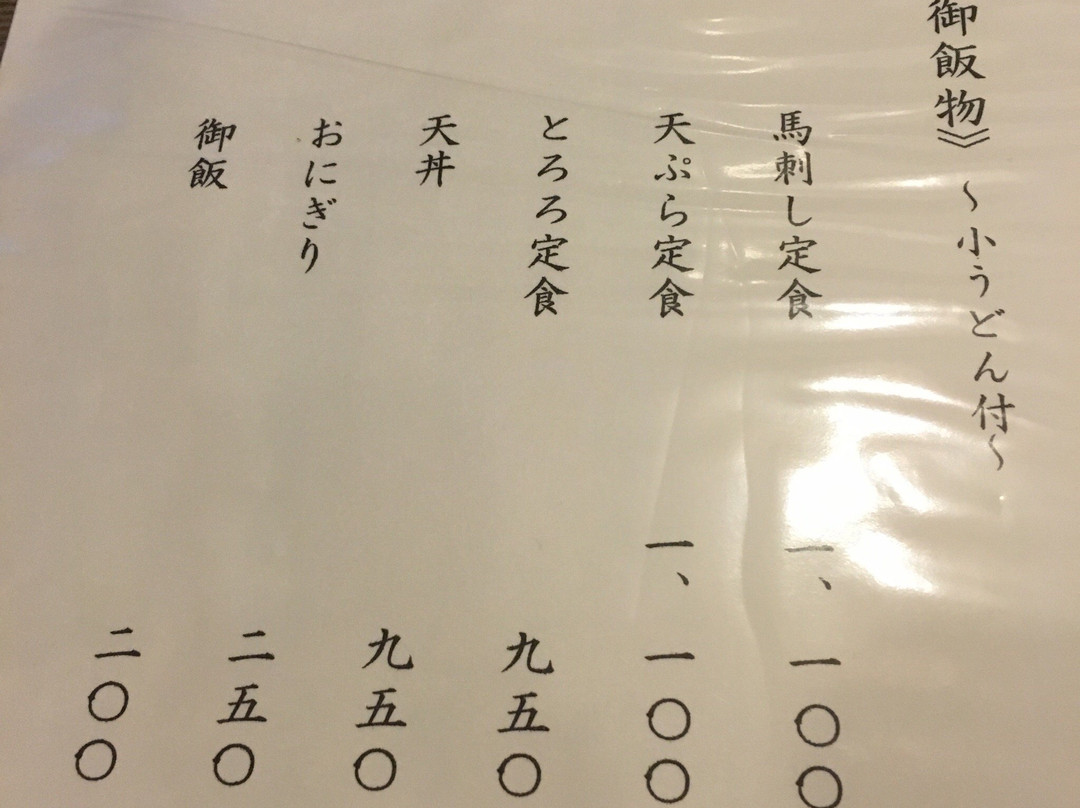 御飯物》 〜小うどん付〜
馬刺し定食 一、一〇〇
天ぷら定食 一、一〇〇
とろろ定食 九五〇
天丼 九五〇
おにぎり 二五〇
御飯 二〇〇